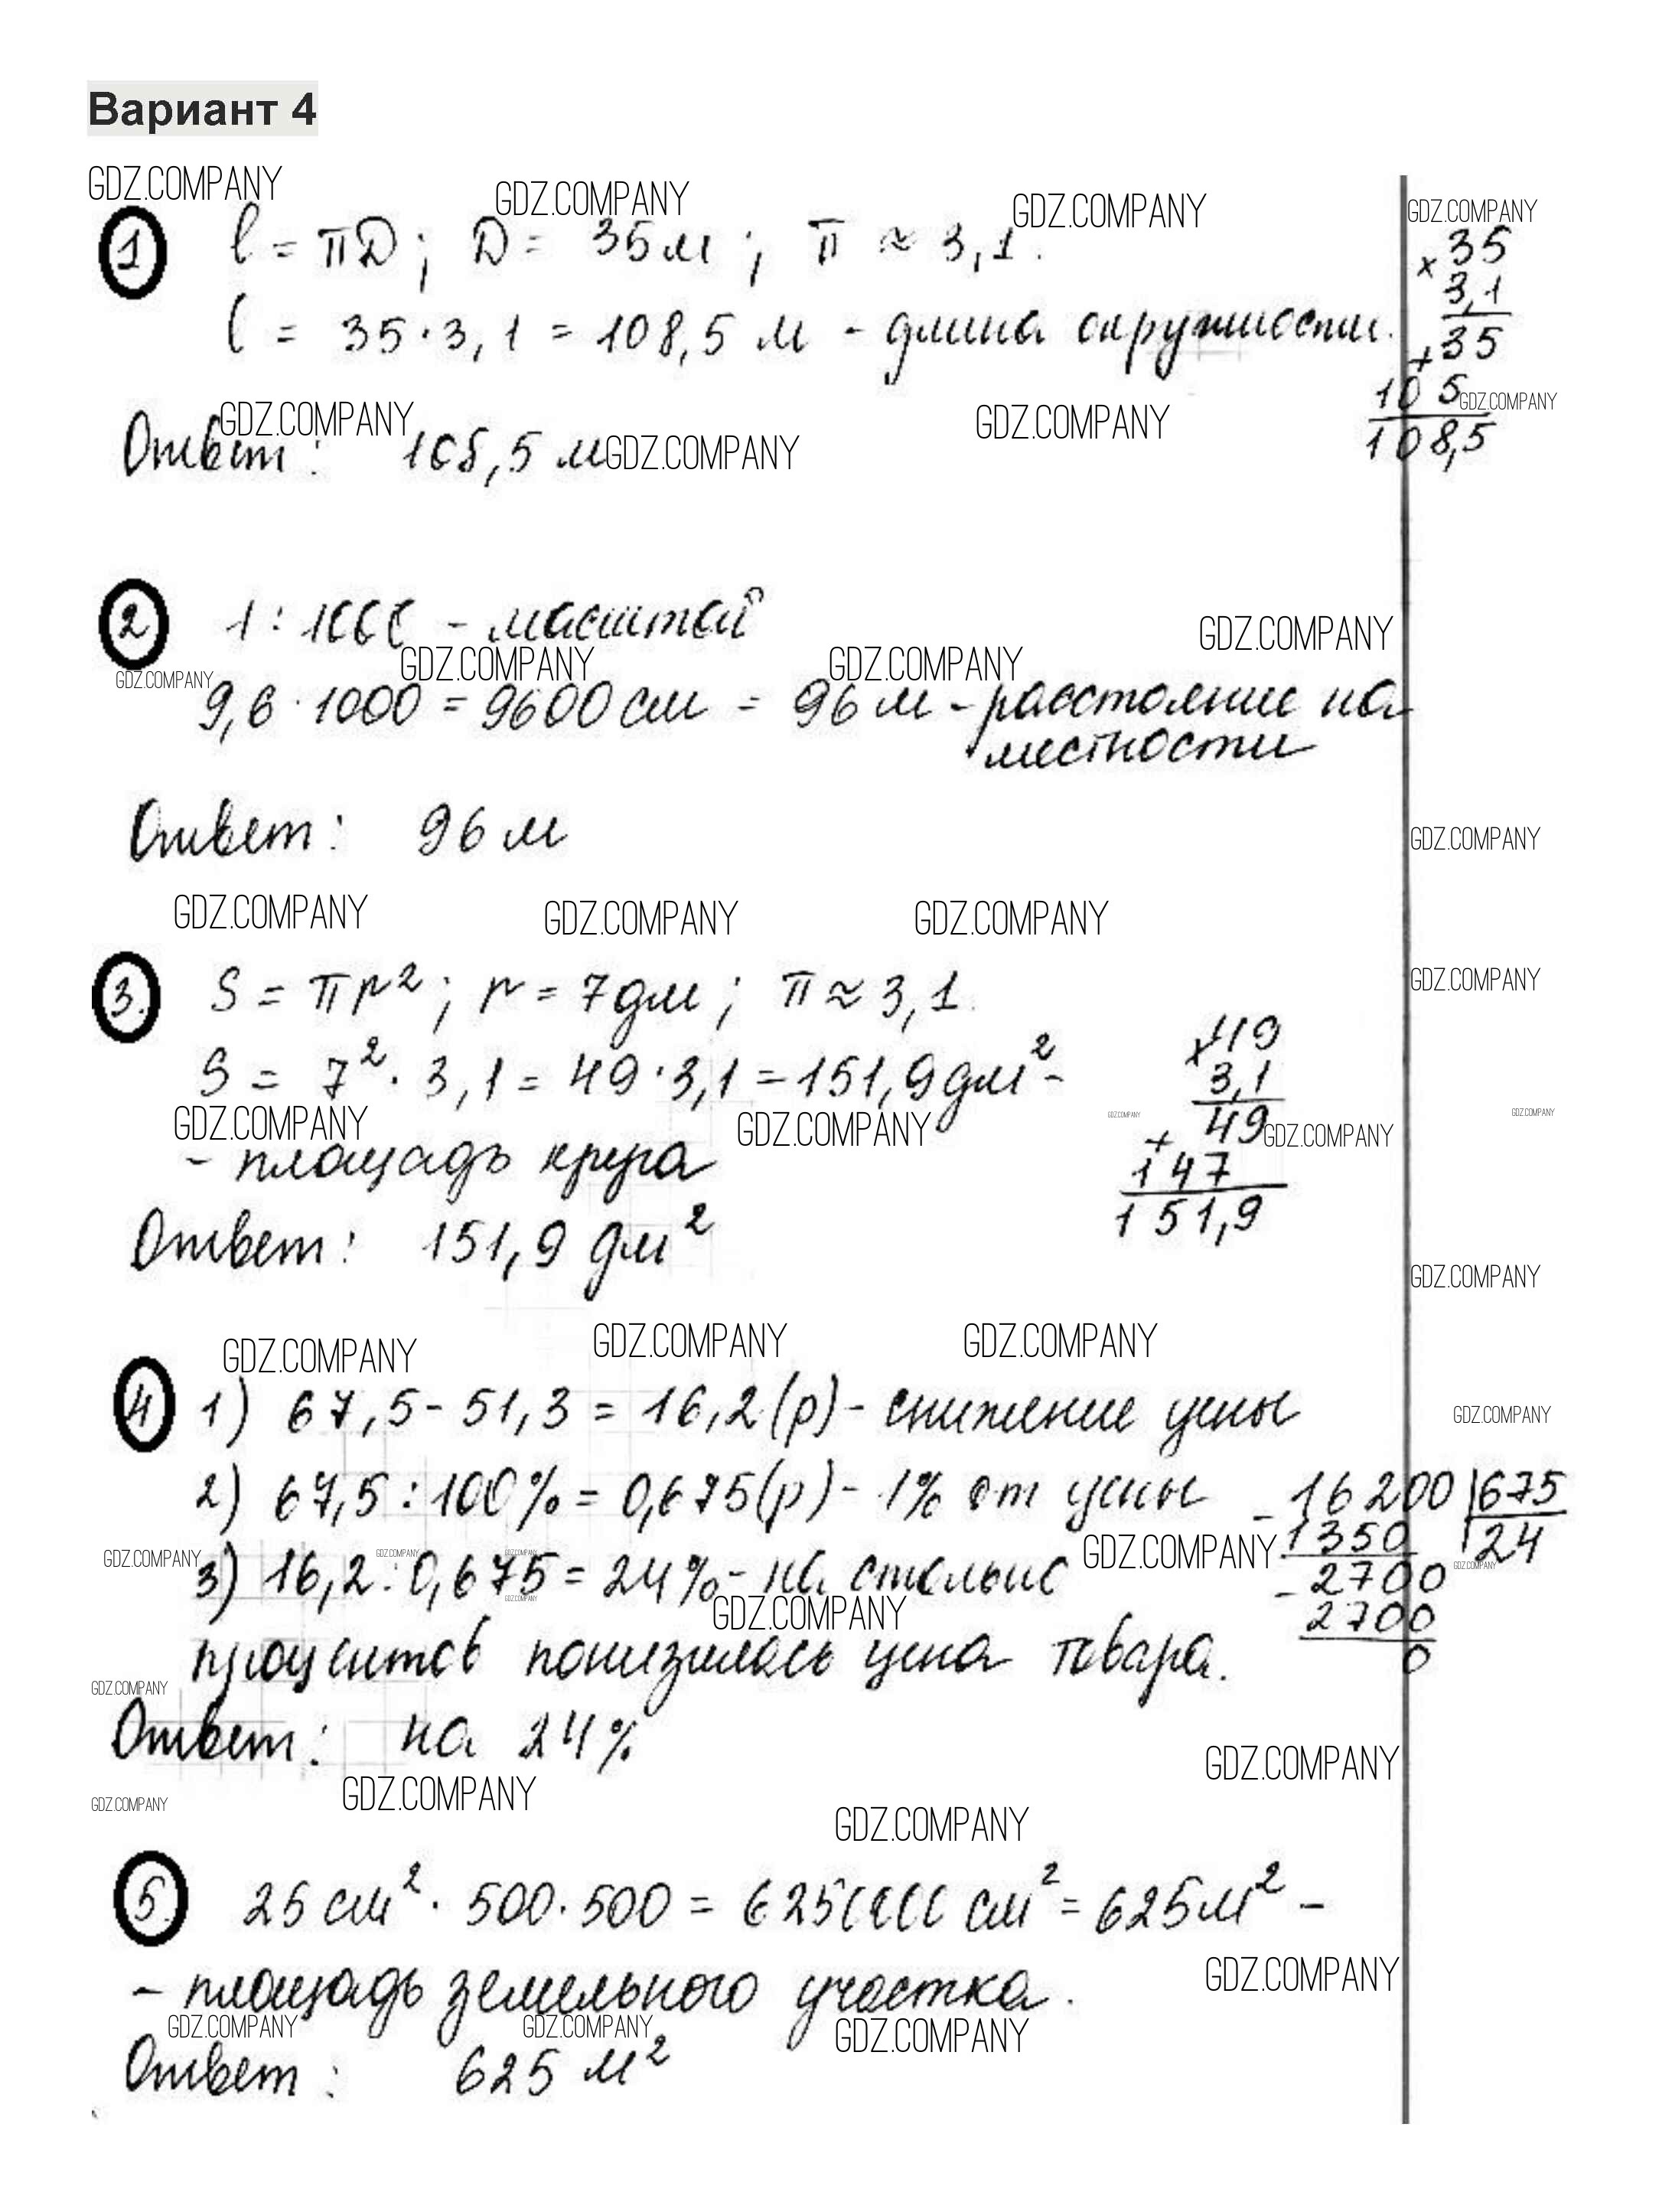 Вариант 4
GDZ.COMPANY GDZ.COMPANY GDZ.COMPANY GDZ.COMPANY
1 l = πD ; D = 35 м ; π ≈ 3,1.
l = 35 · 3,1 = 108,5 м - длина окружности.
× 35
3,1
+ 35
105
108,5
GDZ.COMPANY GDZ.COMPANY GDZ.COMPANY
Ответ: 108,5 м GDZ.COMPANY
2 1 : 1000 - масштаб
GDZ.COMPANY GDZ.COMPANY GDZ.COMPANY GDZ.COMPANY
9,6 · 1000 = 9600 см = 96 м - расстояние на
местности
Ответ: 96 м
GDZ.COMPANY
GDZ.COMPANY GDZ.COMPANY GDZ.COMPANY
GDZ.COMPANY
3. S = πr² ; r = 7 дм ; π ≈ 3,1.
S = 7² · 3,1 = 49 · 3,1 = 151,9 дм² -
GDZ.COMPANY GDZ.COMPANY GDZ.COMPANY GDZ.COMPANY GDZ.COMPANY
- площадь круга
× 49
3,1
+ 49
147
151,9
Ответ: 151,9 дм²
GDZ.COMPANY
GDZ.COMPANY GDZ.COMPANY GDZ.COMPANY
4 1) 67,5 - 51,3 = 16,2 (р) - снижение цены
GDZ.COMPANY
2) 67,5 : 100% = 0,675 (р) - 1% от цены
GDZ.COMPANY GDZ.COMPANY GDZ.COMPANY GDZ.COMPANY GDZ.COMPANY
3) 16,2 : 0,675 = 24% - на столько
GDZ.COMPANY GDZ.COMPANY
процентов понизилась цена товара.
- 16200 | 675
1350 24
- 2700
2700
0
GDZ.COMPANY
Ответ: на 24%
GDZ.COMPANY
GDZ.COMPANY GDZ.COMPANY
GDZ.COMPANY
5. 25 см² · 500 · 500 = 6250000 см² = 625 м² -
GDZ.COMPANY
- площадь земельного участка.
GDZ.COMPANY GDZ.COMPANY GDZ.COMPANY
Ответ: 625 м²